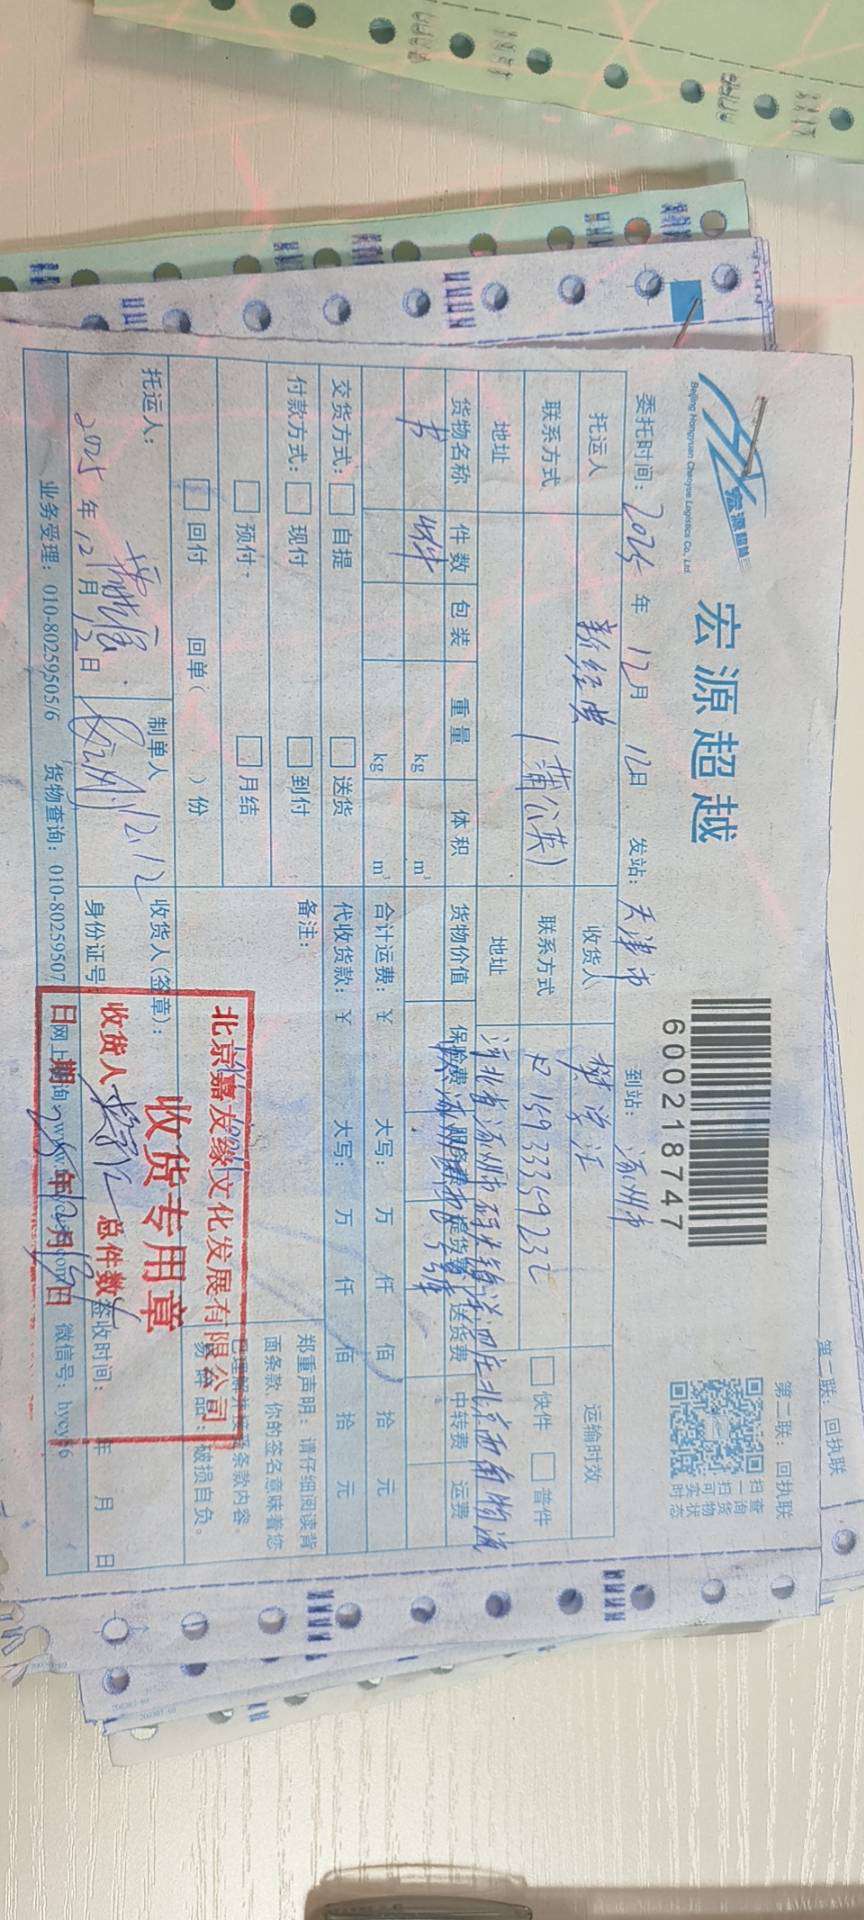 宏源超越
Beijing Hongyuan Chaoyue Logistics Co., Ltd
宏源超越
6000218747
第一联：回执联
第二联：回执联
扫一扫可实时
查询货物状态
委托时间：2025年12月12日 发站：天津市 到站：涿州市
托运人 新经典 收货人 樊学江 运输时效
联系方式 (蒲公英) 联系方式 15933359232 快件 普件
地址 地址 河北省涿州市
货物名称 件数 包装 重量 体积 货物价值 保险费 提货费 送货费 中转费 运费
书 4件 kg m³
kg m³ 合计运费：￥ 大写： 万 仟 佰 拾 元
交货方式： 自提 送货 代收货款：￥ 大写： 万 仟 佰 拾 元
付款方式： 现付 到付 备注： 郑重声明：请仔细阅读背
预付 月结 面条款 你的签名意味着您
已理解并接受条款内容。
回付 回单( )份 易碎品：破损自负。
北京嘉友缘文化发展有限公司
收货专用章
收货人 总件数
日期 年 月 日
托运人： 制单人 12.12 收货人(签章)：
2025年12月12日 身份证号 签收时间： 年 月 日
业务受理：010-80259505/6 货物查询：010-80259507 网上查询 微信号：hycy56